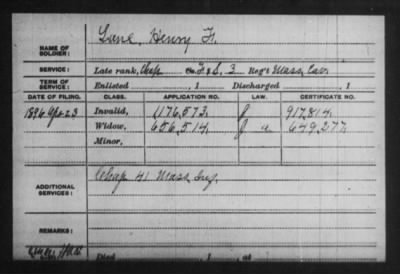 NAME OF SOLDIER: Lane, Henry F.
SERVICE: Late rank, Chap Co. F & S, 3 Reg't Mass Cav.
TERM OF SERVICE: Enlisted , 1 Discharged , 1
DATE OF FILING. CLASS. APPLICATION NO. LAW. CERTIFICATE NO.
Invalid, 1176,573. 917,814.
1896 Apr 23 Widow, 656,514. 649,277.
Minor,
ADDITIONAL SERVICES: Chap 41 Mass Inf.
REMARKS:
Died , 1 , at